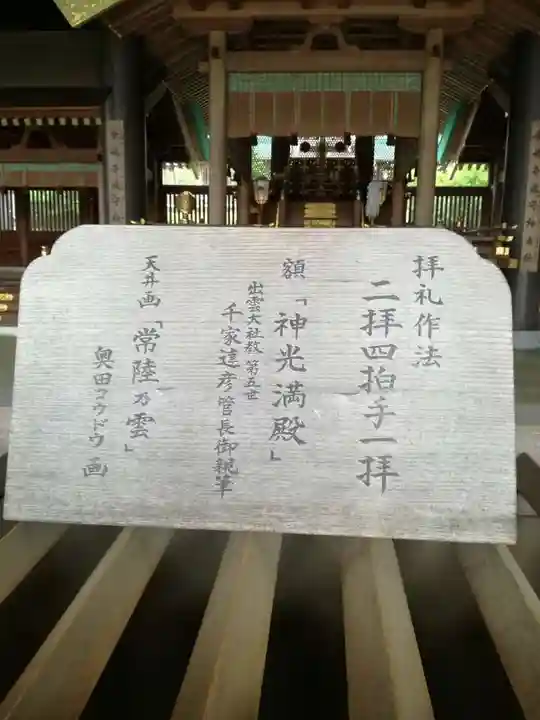 拝礼作法
二拝四拍手一拝
額「神光満殿」
出雲大社教 第五世
千家達彦管長御親筆
天井画「常陸乃雲」
奥田コウドウ 画